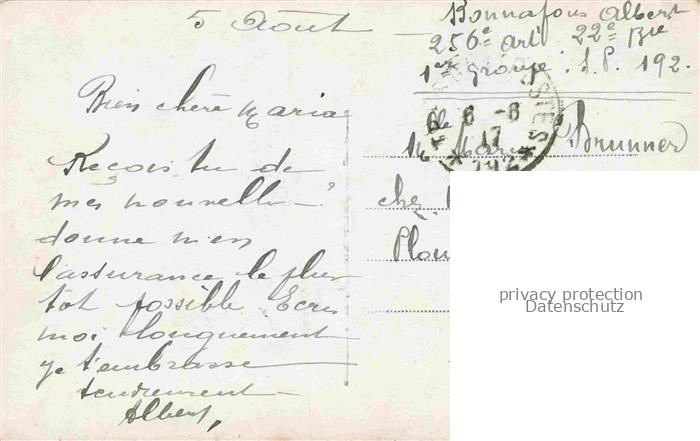 5 Août
Bonnafous Albert
256e Arti 22e Bie
1er groupe. S.P. 192.
Bien chère Maria
Reçois tu de
mes nouvelles ?
donne m'en
l'assurance le plus
tôt possible. Ecris
moi longuement
je t'embrasse
tendrement
Albert,
6 -8
17
Mlle Maria Brunner
chez
Plou
privacy protection
Datenschutz